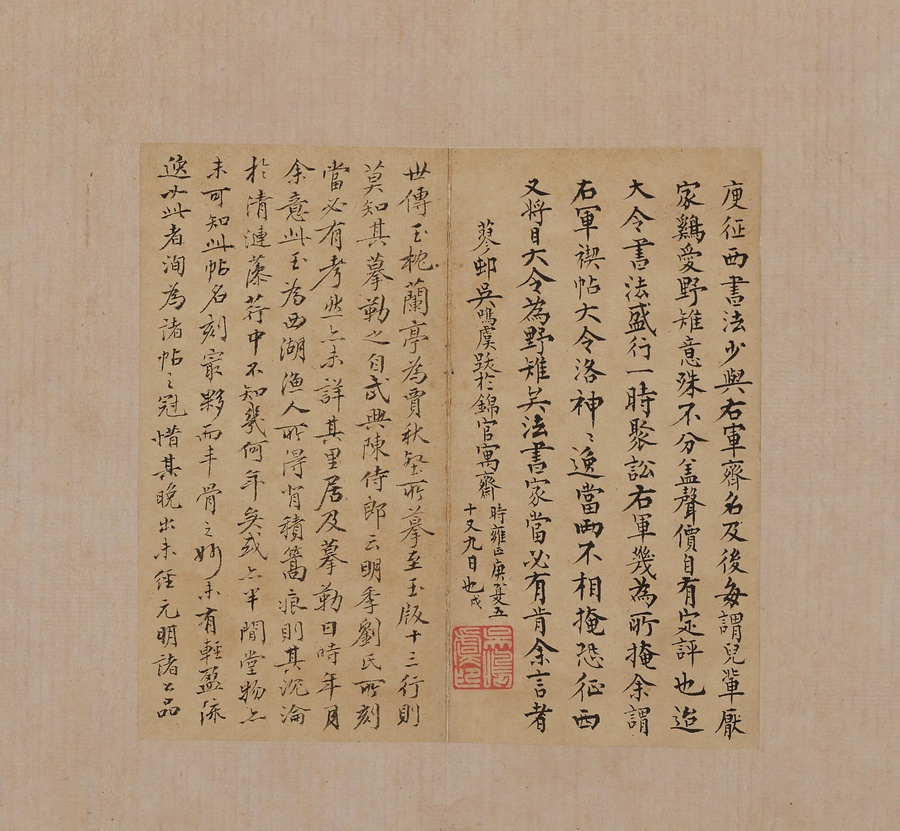 庾征西書法少與右軍齊名及後每謂兒輩厭
家鷄愛野雉意殊不分盖聲價自有定評也迨
大令書法盛行一時聚訟右軍幾為所掩余謂
右軍禊帖大令洛神〻逸當兩不相掩恐征西
又將目大令為野雉矣法書家當必有肯余言者
蓼邨吳鳴虞跋於錦官寓齋
時雍正庚戌夏五
十又九日也
世傳玉枕蘭亭為賈秋壑所摹至玉版十三行則
莫知其摹勒之自武興陳侍郎云明季劉氏所刻
當必有考然亦未詳其里居及摹勒日時年月
余意此玉為西湖漁人所得背積篙痕則其沉淪
於清漣藻荇中不知幾何年矣或亦半閒堂物亦
未可知此帖名刻寂夥而丰骨之妙未有輕盈流
逸如此者洵為諸帖之冠惜其晚出未經元明諸公品